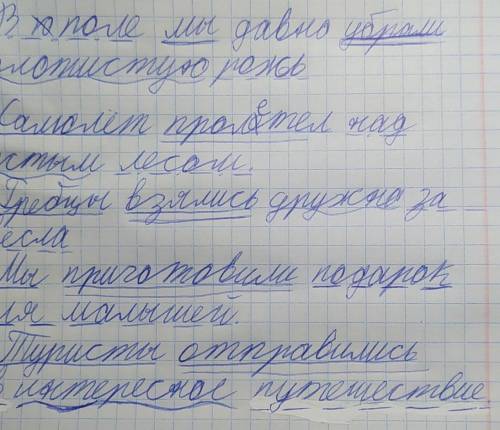 В поле мы давно убрали
лотистую рожь
Самолёт пролетел над
стым лесом.
Гребцы взялись дружно за
есла
Мы приготовили подарок
ля малышей.
Туристы отправились
в интересное путешествие